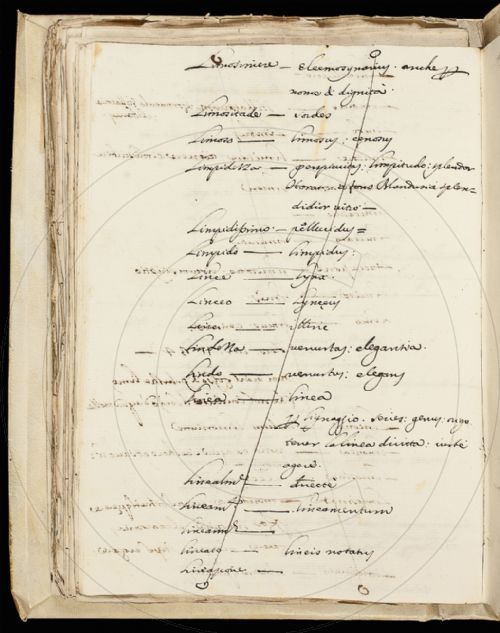 Limosiniere — eleemosynarius. anche pp
nome di dignità.
Limositade — sordes
Limoso — limosus: cenosus
Limpidezza — perspicuus: limpitudo: splendor
Horatius: o fons Blandusiæ splen=
didior vitro —
Limpidissimo — pellucidus=
Limpido — limpidus:
Lince — lynx.
Linceo — lynceus
Lindezza — venustas: elegantia.
Lindo — venustus: elegans
Linea — linea
p lignaggio. series: genus: origo
tener la linea diritta:
agere.
Linealmte — directe
Lineamto — lineamentum
Lineamte —
Lineato — lineis notatus
Lineazione —